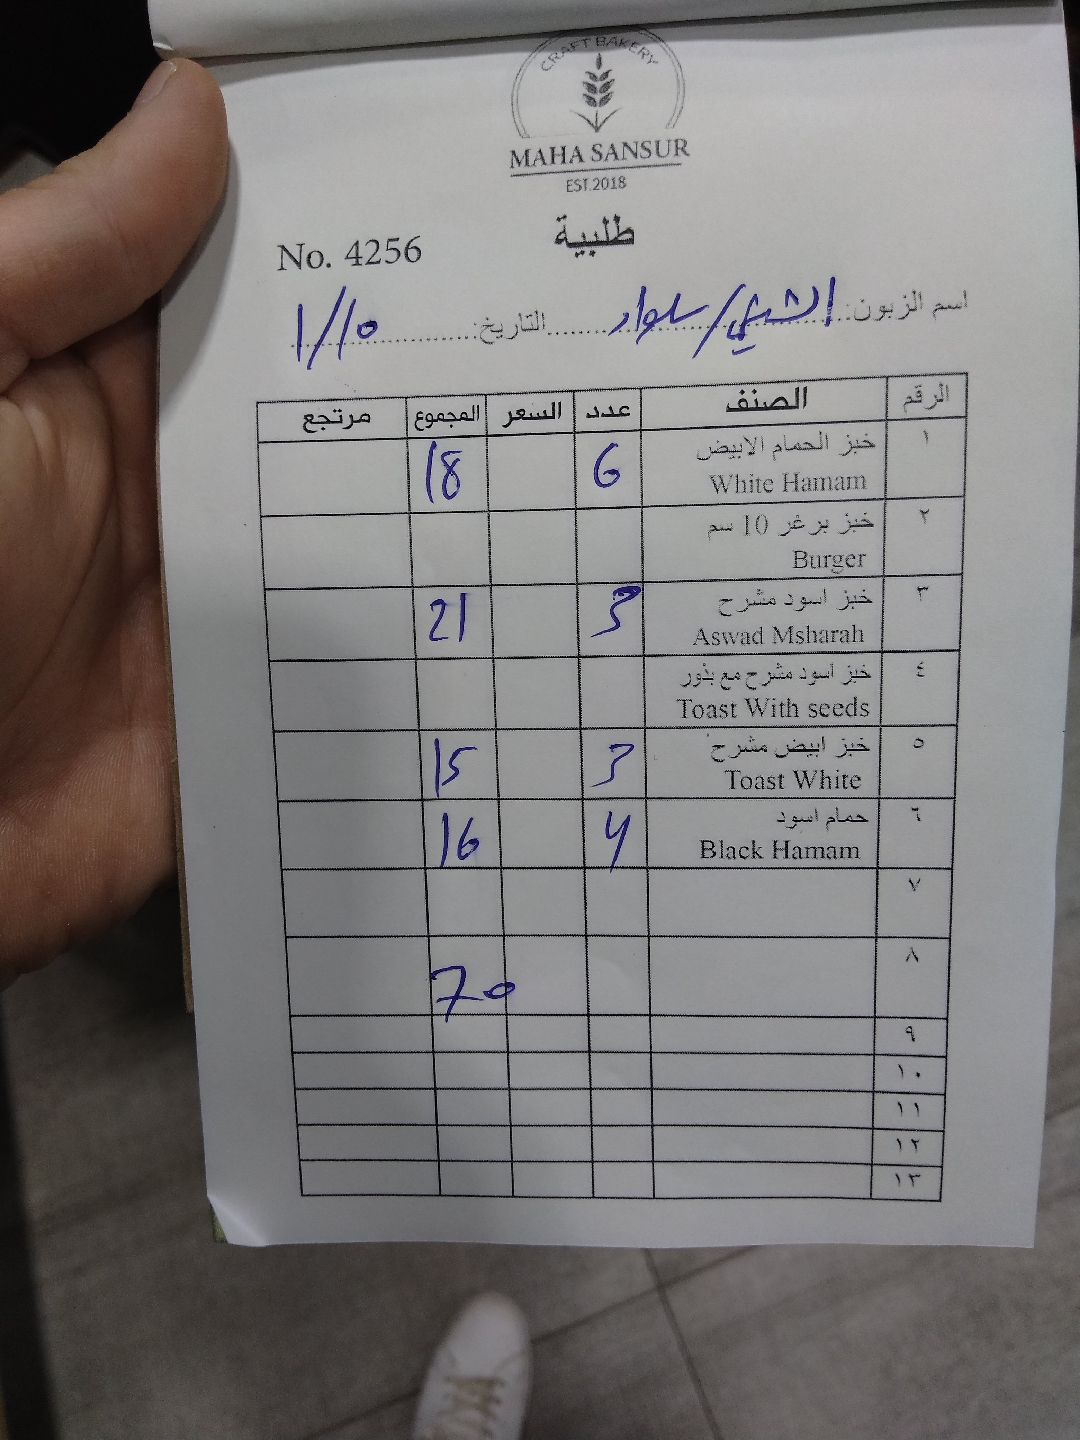 CRAFT BAKERY
MAHA SANSUR
EST.2018
طلبية
No. 4256
اسم الزبون: الشبلي/سلواد التاريخ: 1/10
الرقم الصنف عدد السعر المجموع مرتجع
١ خبز الحمام الابيض 6 18
White Hamam
٢ خبز برغر 10 سم
Burger
٣ خبز اسود مشرح 3 21
Aswad Msharah
٤ خبز اسود مشرح مع بذور
Toast With seeds
٥ خبز ابيض مشرح 3 15
Toast White
٦ حمام اسود 4 16
Black Hamam
٧
٨ 70
٩
١٠
١١
١٢
١٣